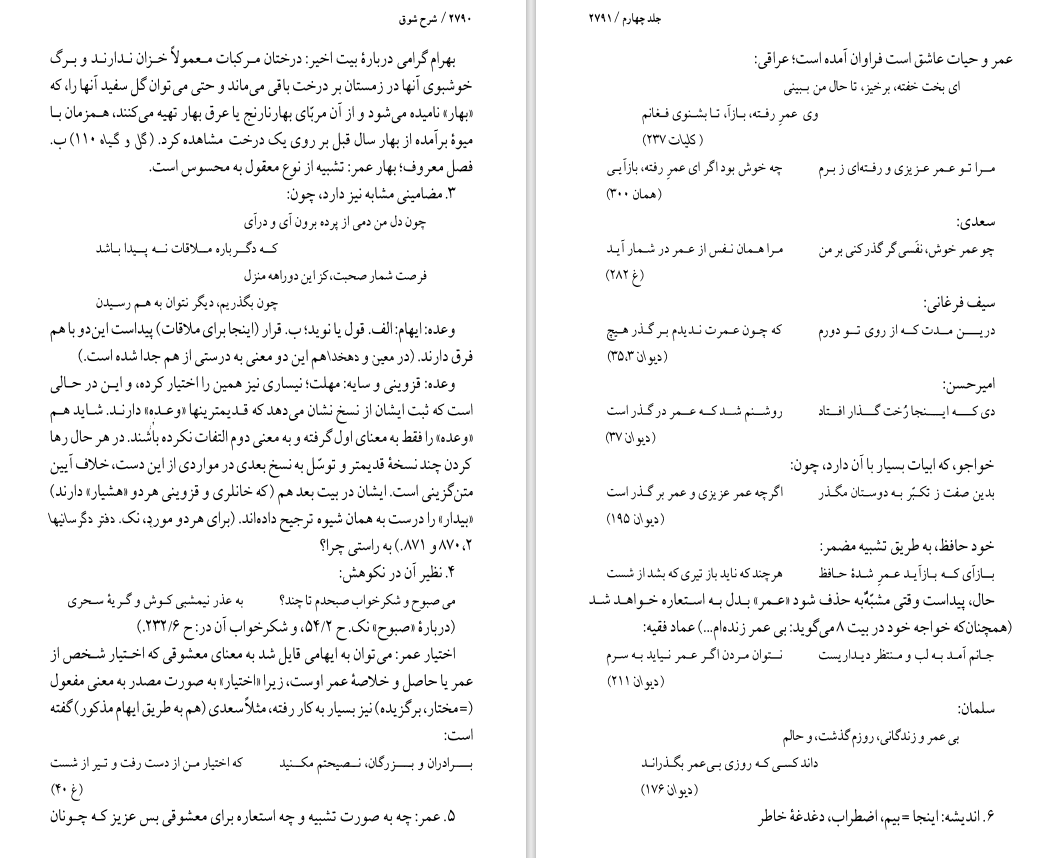 ۲۷۹۰ / شرح شوق
بهرام گرامی دربارهٔ بیت اخیر: درختان مرکبات معمولاً خزان ندارند و برگ
خوشبوی آنها در زمستان بر درخت باقی می‌ماند و حتی می‌توان گل سفید آنها را، که
«بهار» نامیده می‌شود و از آن مربّای بهارنارنج یا عرق بهار تهیه می‌کنند، همزمان با
میوهٔ برآمده از بهار سال قبل بر روی یک درخت مشاهده کرد. (گل و گیاه ۱۱۰) ب.
فصل معروف؛ بهار عمر: تشبیه از نوع معقول به محسوس است.
۳. مضامینی مشابه نیز دارد، چون:
چون دل من دمی از پرده برون آی و درآی
که دگرباره ملاقات نه پیدا باشد
فرصت شمار صحبت، کز این دوراهه منزل
چون بگذریم، دیگر نتوان به هم رسیدن
وعده: ایهام: الف. قول یا نوید؛ ب. قرار (اینجا برای ملاقات) پیداست این‌دو با هم
فرق دارند. (در معین و دهخدا هم این دو معنی به درستی از هم جدا شده است.)
وعده: قزوینی و سایه: مهلت؛ نیساری نیز همین را اختیار کرده، و این در حالی
است که ثبت ایشان از نسخ نشان می‌دهد که قدیمترینها «وعده» دارند. شاید هم
«وعده» را فقط به معنای اول گرفته و به معنی دوم التفات نکرده باشند. در هر حال رها
کردن چند نسخهٔ قدیمتر و توسّل به نسخ بعدی در مواردی از این دست، خلاف آیین
متن‌گزینی است. ایشان در بیت بعد هم (که خانلری و قزوینی هردو «هشیار» دارند)
«بیدار» را درست به همان شیوه ترجیح داده‌اند. (برای هر دو مورد، نک. دفتر دگرسانیها
۲، ۸۷۰ و ۸۷۱.) به راستی چرا؟
۴. نظیر آن در نکوهش:
می صبوح و شکرخواب صبحدم تا چند؟ به عذر نیمشبی کوش و گریهٔ سحری
(دربارهٔ «صبوح» نک. ح ۵۴/۲، و شکرخواب آن در: ح ۲۳۲/۶.)
اختیار عمر: می‌توان به ایهامی قایل شد به معنای معشوقی که اختیار شخص از
عمر یا حاصل و خلاصهٔ عمر اوست، زیرا «اختیار» به صورت مصدر به معنی مفعول
(=مختار، برگزیده) نیز بسیار به کار رفته، مثلاً سعدی (هم به طریق ایهام مذکور) گفته
است:
برادران و بزرگان، نصیحتم مکنید که اختیار من از دست رفت و تیر از شست
(غ ۴۰)
۵. عمر: چه به صورت تشبیه و چه استعاره برای معشوقی بس عزیز که چونان
جلد چهارم / ۲۷۹۱
عمر و حیات عاشق است فراوان آمده است؛ عراقی:
ای بخت خفته، برخیز، تا حال من ببینی
وی عمرِ رفته، بازآ، تا بشنوی فغانم
(کلیات ۲۳۷)
مرا تو عمر عزیزی و رفته‌ای ز برم چه خوش بود اگر ای عمرِ رفته، بازآیی
(همان ۳۰۰)
سعدی:
چو عمر خوش، نفَسی گر گذر کنی بر من مرا همان نفس از عمر در شمار آید
(غ ۲۸۲)
سیف فرغانی:
درین مدت که از روی تو دورم که چون عمرت ندیدم بر گذر هیچ
(دیوان ۳۵،۳)
امیرحسن:
دی که اینجا رُخت گذار افتاد روشنم شد که عمر در گذر است
(دیوان ۳۷)
خواجو، که ابیات بسیار با آن دارد، چون:
بدین صفت ز تکبّر به دوستان مگذر اگرچه عمر عزیزی و عمر بر گذر است
(دیوان ۱۹۵)
خود حافظ، به طریق تشبیه مضمر:
بازآی که بازآید عمرِ شدهٔ حافظ هرچند که ناید باز تیری که بشد از شست
حال، پیداست وقتی مشبّهٌ‌به حذف شود «عمر» بدل به استعاره خواهد شد
(همچنان‌که خواجه خود در بیت ۸ می‌گوید: بی عمر زنده‌ام...) عماد فقیه:
جانم آمد به لب و منتظر دیداریست نتوان مردن اگر عمر نیاید به سرم
(دیوان ۲۱۱)
سلمان:
بی عمر و زندگانی، روزم گذشت، و حالم
داند کسی که روزی بی‌عمر بگذراند
(دیوان ۱۷۶)
۶. اندیشه: اینجا = بیم، اضطراب، دغدغهٔ خاطر